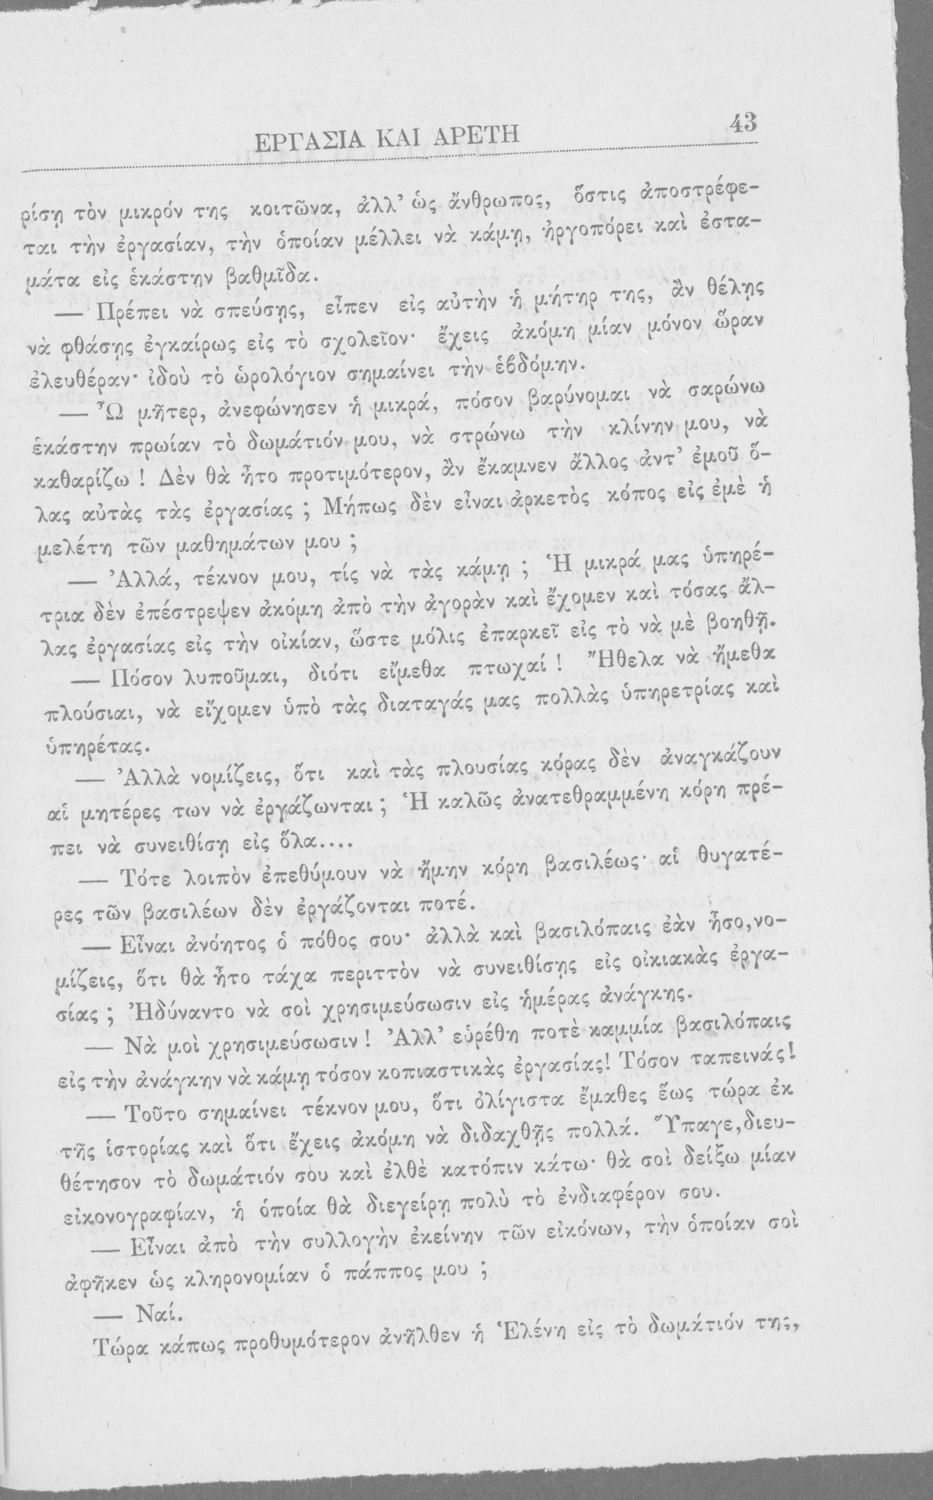 ΕΡΓΑΣΙΑ ΚΑΙ ΑΡΕΤΗ 43
ρίσῃ τὸν μικρόν της κοιτῶνα, ἀλλ’ ὡς ἄνθρωπος, ὅστις ἀποστρέφε-
ται τὴν ἐργασίαν, τὴν ὁποίαν μέλλει νὰ κάμῃ, ἠργοπόρει καὶ ἐστα-
μάτα εἰς ἑκάστην βαθμῖδα.
— Πρέπει νὰ σπεύσῃς, εἶπεν εἰς αὐτὴν ἡ μήτηρ της, ἂν θέλῃς
νὰ φθάσῃς ἐγκαίρως εἰς τὸ σχολεῖον· ἔχεις ἀκόμη μίαν μόνον ὥραν
ἐλευθέραν· ἰδοὺ τὸ ὡρολόγιον σημαίνει τὴν ἑβδόμην.
— Ὦ μῆτερ, ἀνεφώνησεν ἡ μικρά, πόσον βαρύνομαι νὰ σαρώνω
ἑκάστην πρωίαν τὸ δωμάτιόν μου, νὰ στρώνω τὴν κλίνην μου, νὰ
καθαρίζω ! Δὲν θὰ ἦτο προτιμότερον, ἂν ἔκαμνεν ἄλλος ἀντ’ ἐμοῦ ὅ-
λας αὐτὰς τὰς ἐργασίας ; Μήπως δὲν εἶναι ἀρκετὸς κόπος εἰς ἐμὲ ἡ
μελέτη τῶν μαθημάτων μου ;
— Ἀλλά, τέκνον μου, τίς νὰ τὰς κάμῃ ; Ἡ μικρά μας ὑπηρέ-
τρια δὲν ἐπέστρεψεν ἀκόμη ἀπὸ τὴν ἀγορὰν καὶ ἔχομεν καὶ τόσας ἄλ-
λας ἐργασίας εἰς τὴν οἰκίαν, ὥστε μόλις ἐπαρκεῖ εἰς τὸ νὰ μὲ βοηθῇ.
— Πόσον λυποῦμαι, διότι εἴμεθα πτωχαί ! Ἤθελα νὰ ἤμεθα
πλούσιαι, νὰ εἴχομεν ὑπὸ τὰς διαταγάς μας πολλὰς ὑπηρετρίας καὶ
ὑπηρέτας.
— Ἀλλὰ νομίζεις, ὅτι καὶ τὰς πλουσίας κόρας δὲν ἀναγκάζουν
αἱ μητέρες των νὰ ἐργάζωνται ; Ἡ καλῶς ἀνατεθραμμένη κόρη πρέ-
πει νὰ συνειθίσῃ εἰς ὅλα....
— Τότε λοιπὸν ἐπεθύμουν νὰ ἤμην κόρη βασιλέως· αἱ θυγατέ-
ρες τῶν βασιλέων δὲν ἐργάζονται ποτέ.
— Εἶναι ἀνόητος ὁ πόθος σου· ἀλλὰ καὶ βασιλόπαις ἐὰν ἦσο, νο-
μίζεις, ὅτι θὰ ἦτο τάχα περιττὸν νὰ συνειθίσῃς εἰς οἰκιακὰς ἐργα-
σίας ; Ἠδύναντο νὰ σοὶ χρησιμεύσωσιν εἰς ἡμέρας ἀνάγκης.
— Νὰ μοὶ χρησιμεύσωσιν ! Ἀλλ’ εὑρέθη ποτὲ καμμία βασιλόπαις
εἰς τὴν ἀνάγκην νὰ κάμῃ τόσον κοπιαστικὰς ἐργασίας! Τόσον ταπεινάς!
— Τοῦτο σημαίνει τέκνον μου, ὅτι ὀλίγιστα ἔμαθες ἕως τώρα ἐκ
τῆς ἱστορίας καὶ ὅτι ἔχεις ἀκόμη νὰ διδαχθῇς πολλά. Ὕπαγε, διευ-
θέτησον τὸ δωμάτιόν σου καὶ ἐλθὲ κατόπιν κάτω· θὰ σοὶ δείξω μίαν
εἰκονογραφίαν, ἡ ὁποία θὰ διεγείρῃ πολὺ τὸ ἐνδιαφέρον σου.
— Εἶναι ἀπὸ τὴν συλλογὴν ἐκείνην τῶν εἰκόνων, τὴν ὁποίαν σοὶ
ἀφῆκεν ὡς κληρονομίαν ὁ πάππος μου ;
— Ναί.
Τώρα κάπως προθυμότερον ἀνῆλθεν ἡ Ἑλένη εἰς τὸ δωμάτιόν της,